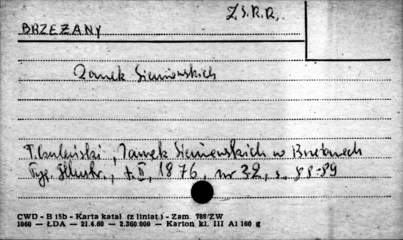 Z.S.R.R.
BRZEŻANY
Zamek Sieniawskich
Zamek Sieniawskich w Brzeżanach
Tyg. Illustr., t. II, 1876, nr 32, s. 88-89
CWD - B 15b - Karta katal. (z liniat.) - Zam. 788/ZW
1060 — ŁDA — 21.4.60 — 2.360.000 — Karton kl. III A1 160 g